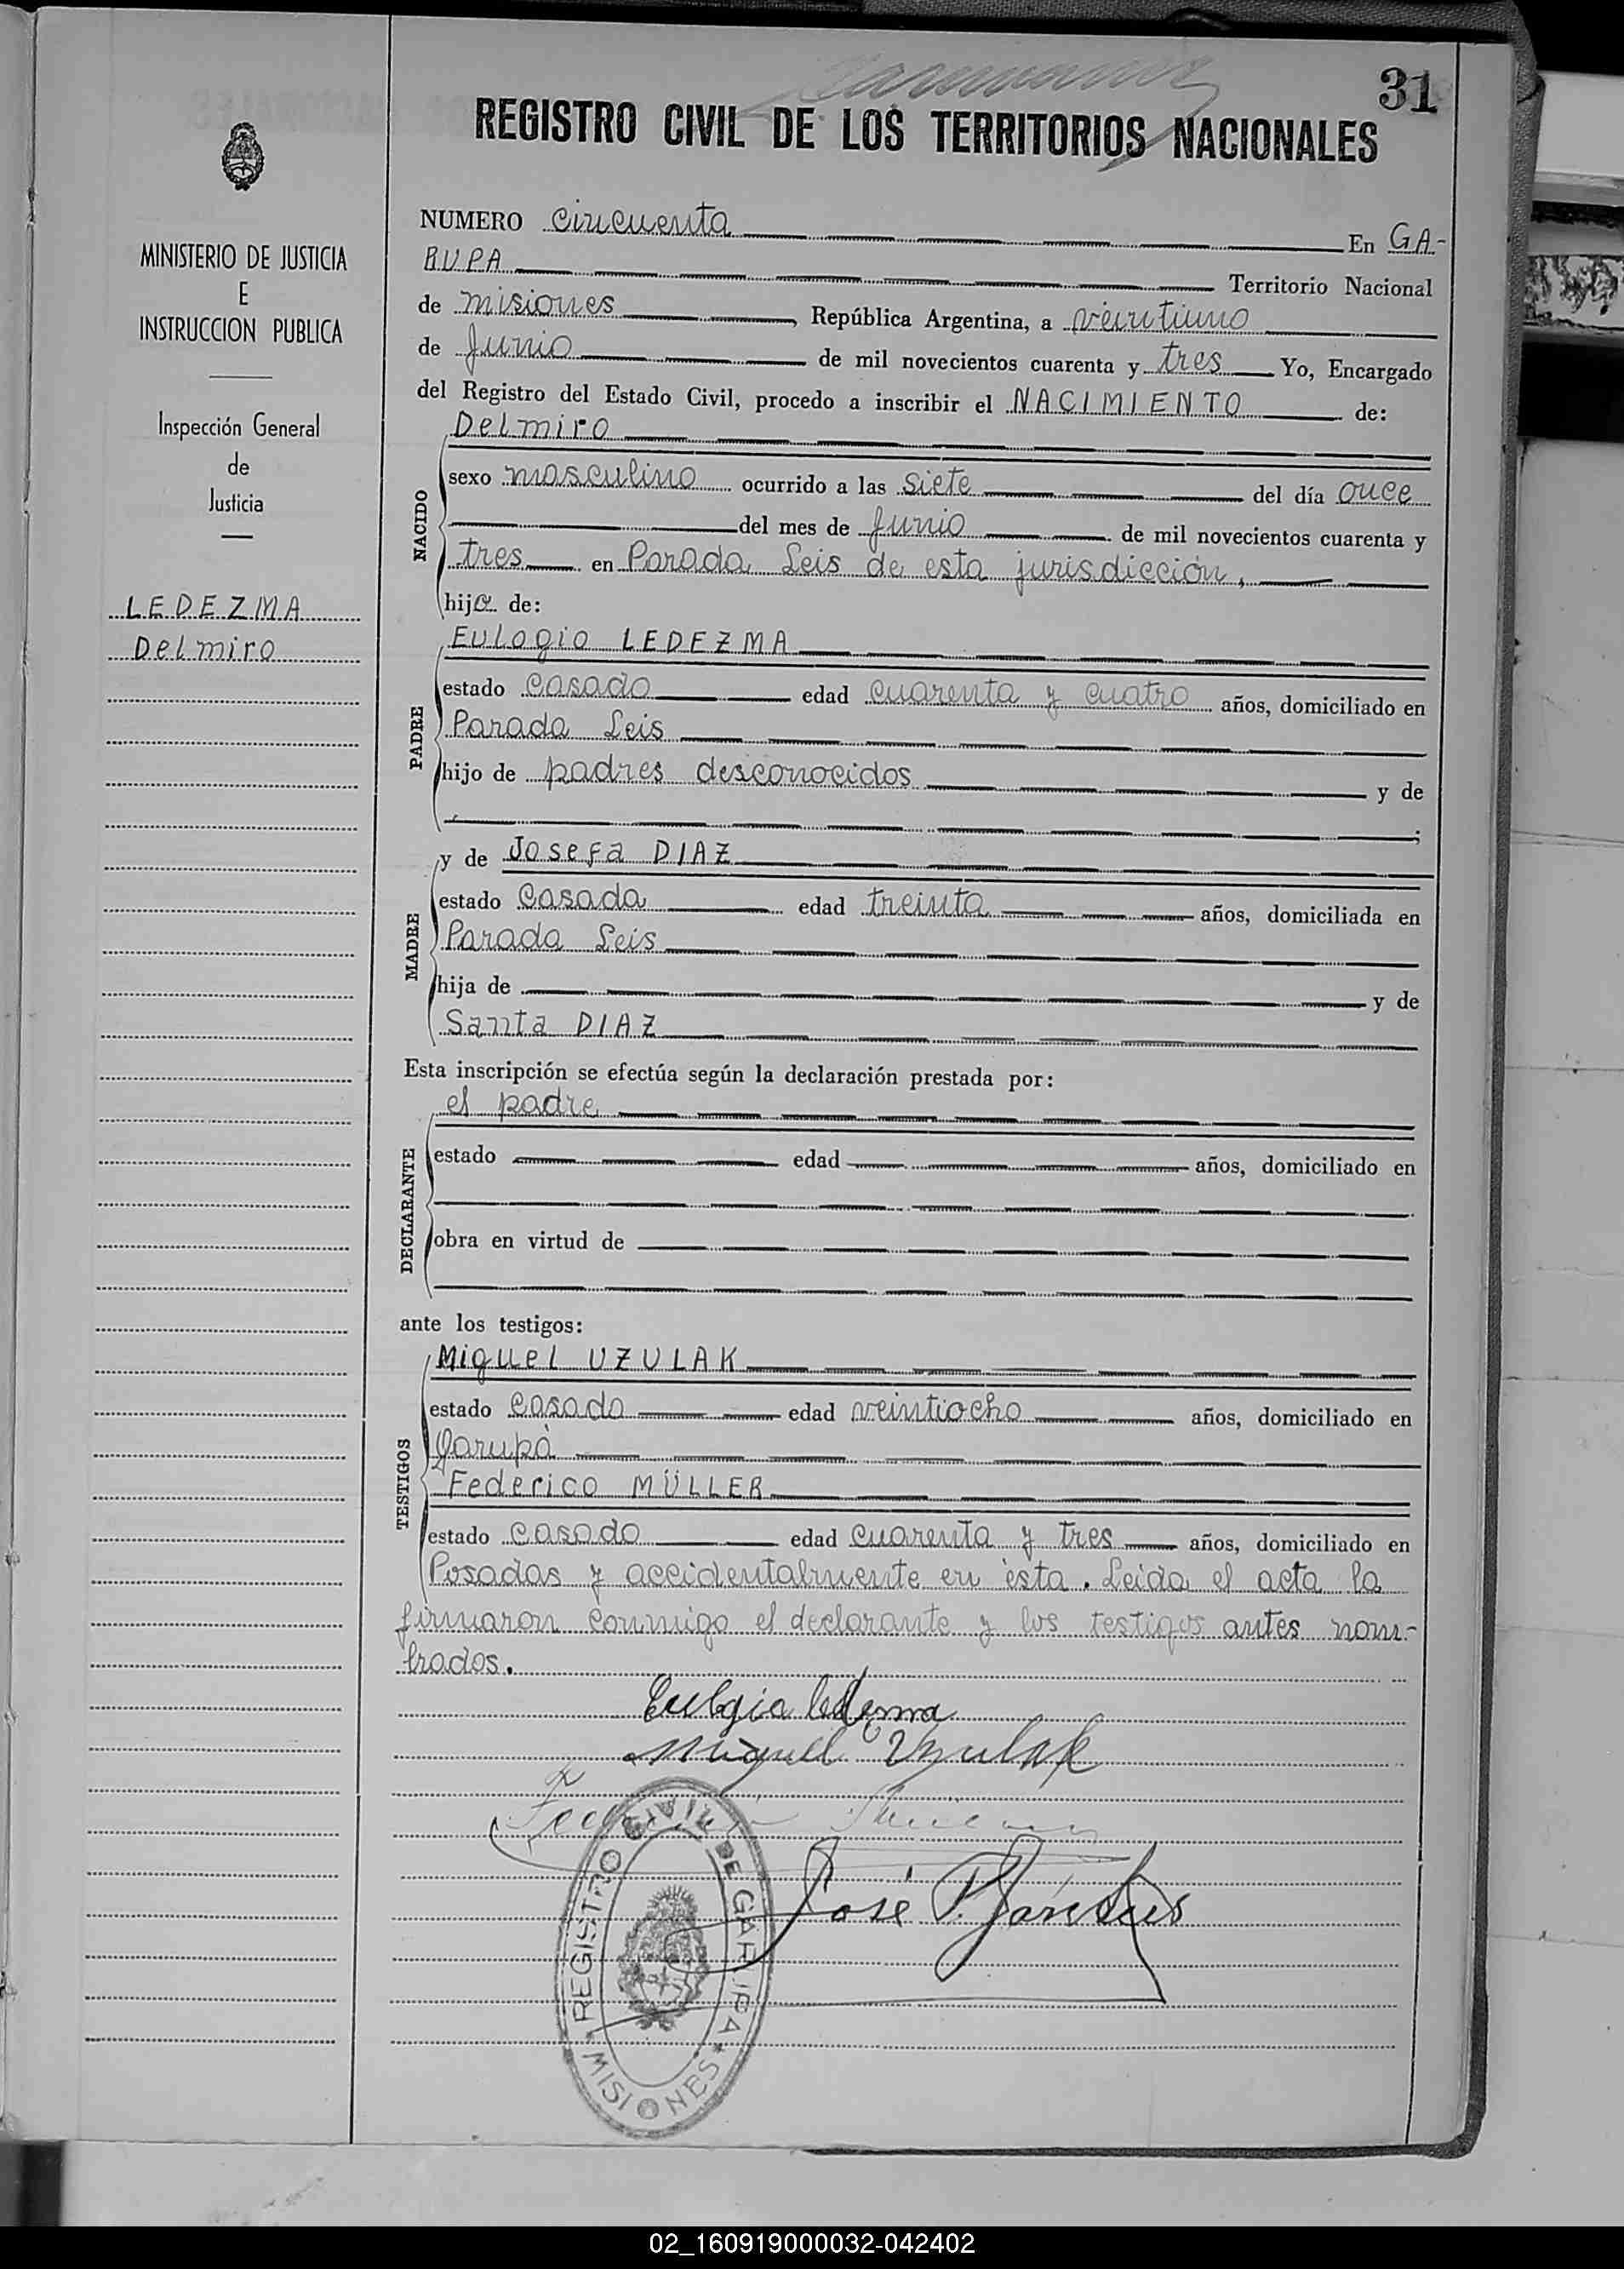 31
REGISTRO CIVIL DE LOS TERRITORIOS NACIONALES
MINISTERIO DE JUSTICIA
E
INSTRUCCION PUBLICA
Inspección General
de
Justicia
LEDEZMA
Delmiro
NUMERO cincuenta En GA-
RUPA Territorio Nacional
de misiones, República Argentina, a veintiuno
de Junio de mil novecientos cuarenta y tres Yo, Encargado
del Registro del Estado Civil, procedo a inscribir el NACIMIENTO de:
Delmiro
NACIDO
sexo masculino ocurrido a las siete del día once
del mes de Junio de mil novecientos cuarenta y
tres en Parada Leis de esta jurisdicción,
hijo de:
Eulogio LEDEZMA
PADRE
estado casado edad cuarenta y cuatro años, domiciliado en
Parada Leis
hijo de padres desconocidos y de
;
y de Josefa DIAZ
MADRE
estado casada edad treinta años, domiciliada en
Parada Leis
hija de y de
Santa DIAZ
Esta inscripción se efectúa según la declaración prestada por:
el padre
DECLARANTE
estado edad años, domiciliado en
obra en virtud de
ante los testigos:
Miguel UZULAK
TESTIGOS
estado casado edad veintiocho años, domiciliado en
Garupà
Federico MÜLLER
estado casado edad cuarenta y tres años, domiciliado en
Posadas y accidentalmente en ésta. Leida el acta la
firmaron conmigo el declarante y los testigos antes nom-
brados.
Eulogio ledezma
Miguel Uzulak
José P.
REGISTRO CIVIL DE GARUPA
* MISIONES *
02_160919000032-042402